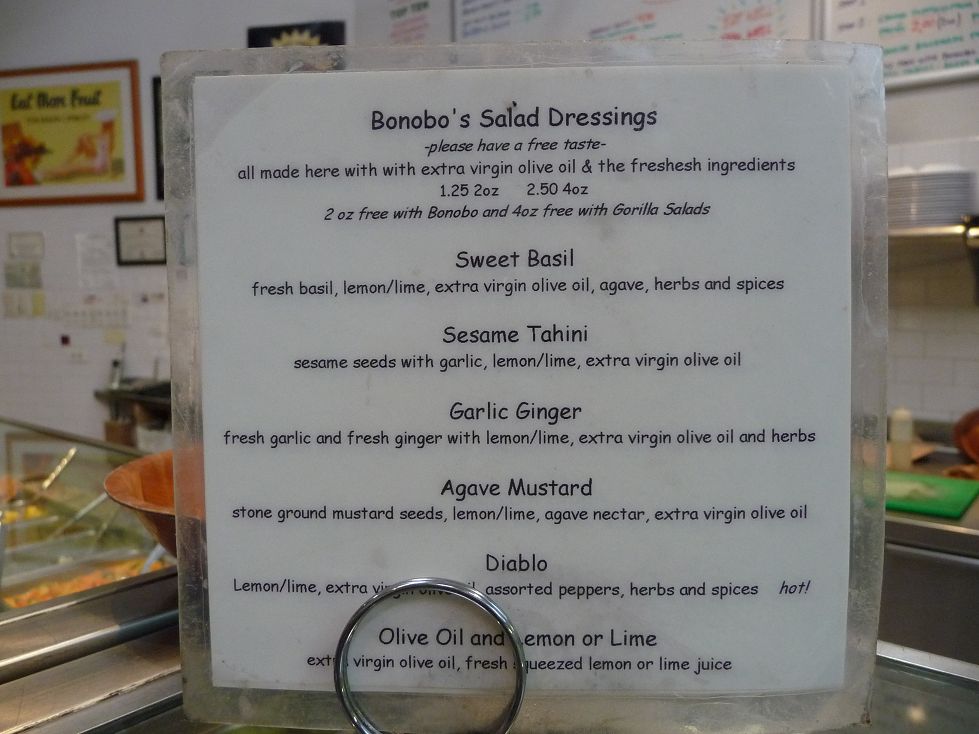 TOP TEN
Eat More Fruit
Bonobo's Salad Dressings
-please have a free taste-
all made here with with extra virgin olive oil & the freshesh ingredients
1.25 2oz 2.50 4oz
2 oz free with Bonobo and 4oz free with Gorilla Salads
Sweet Basil
fresh basil, lemon/lime, extra virgin olive oil, agave, herbs and spices
Sesame Tahini
sesame seeds with garlic, lemon/lime, extra virgin olive oil
Garlic Ginger
fresh garlic and fresh ginger with lemon/lime, extra virgin olive oil and herbs
Agave Mustard
stone ground mustard seeds, lemon/lime, agave nectar, extra virgin olive oil
Diablo
Lemon/lime, extra virgin olive oil, assorted peppers, herbs and spices hot!
Olive Oil and Lemon or Lime
extra virgin olive oil, fresh squeezed lemon or lime juice